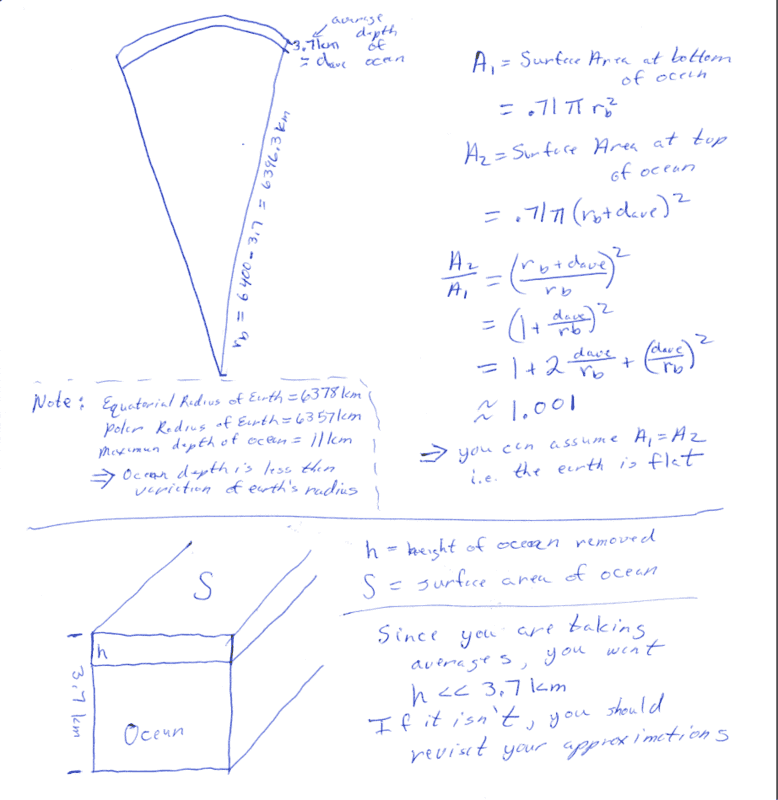 average
depth
3.7km of
= dave ocean
r_b = 6400 - 3.7 = 6396.3 km
A₁ = Surface Area at bottom
of ocean
= .71 π r_b²
A₂ = Surface Area at top
of ocean
= .71π (r_b + dave)²
A₂/A₁ = ((r_b + dave)/r_b)²
= (1 + dave/r_b)²
= 1 + 2 dave/r_b + (dave/r_b)²
≈ 1.001
⇒ you can assume A₁ = A₂
i.e. the earth is flat
Note: Equatorial Radius of Earth = 6378 km
Polar Radius of Earth = 6357 km
Maximum depth of ocean = 11 km
⇒ Ocean depth is less than
variation of earth's radius
S
h
3.7 km
Ocean
h = height of ocean removed
S = surface area of ocean
Since you are taking
averages, you want
h << 3.7 km
If it isn't, you should
revisit your approximations